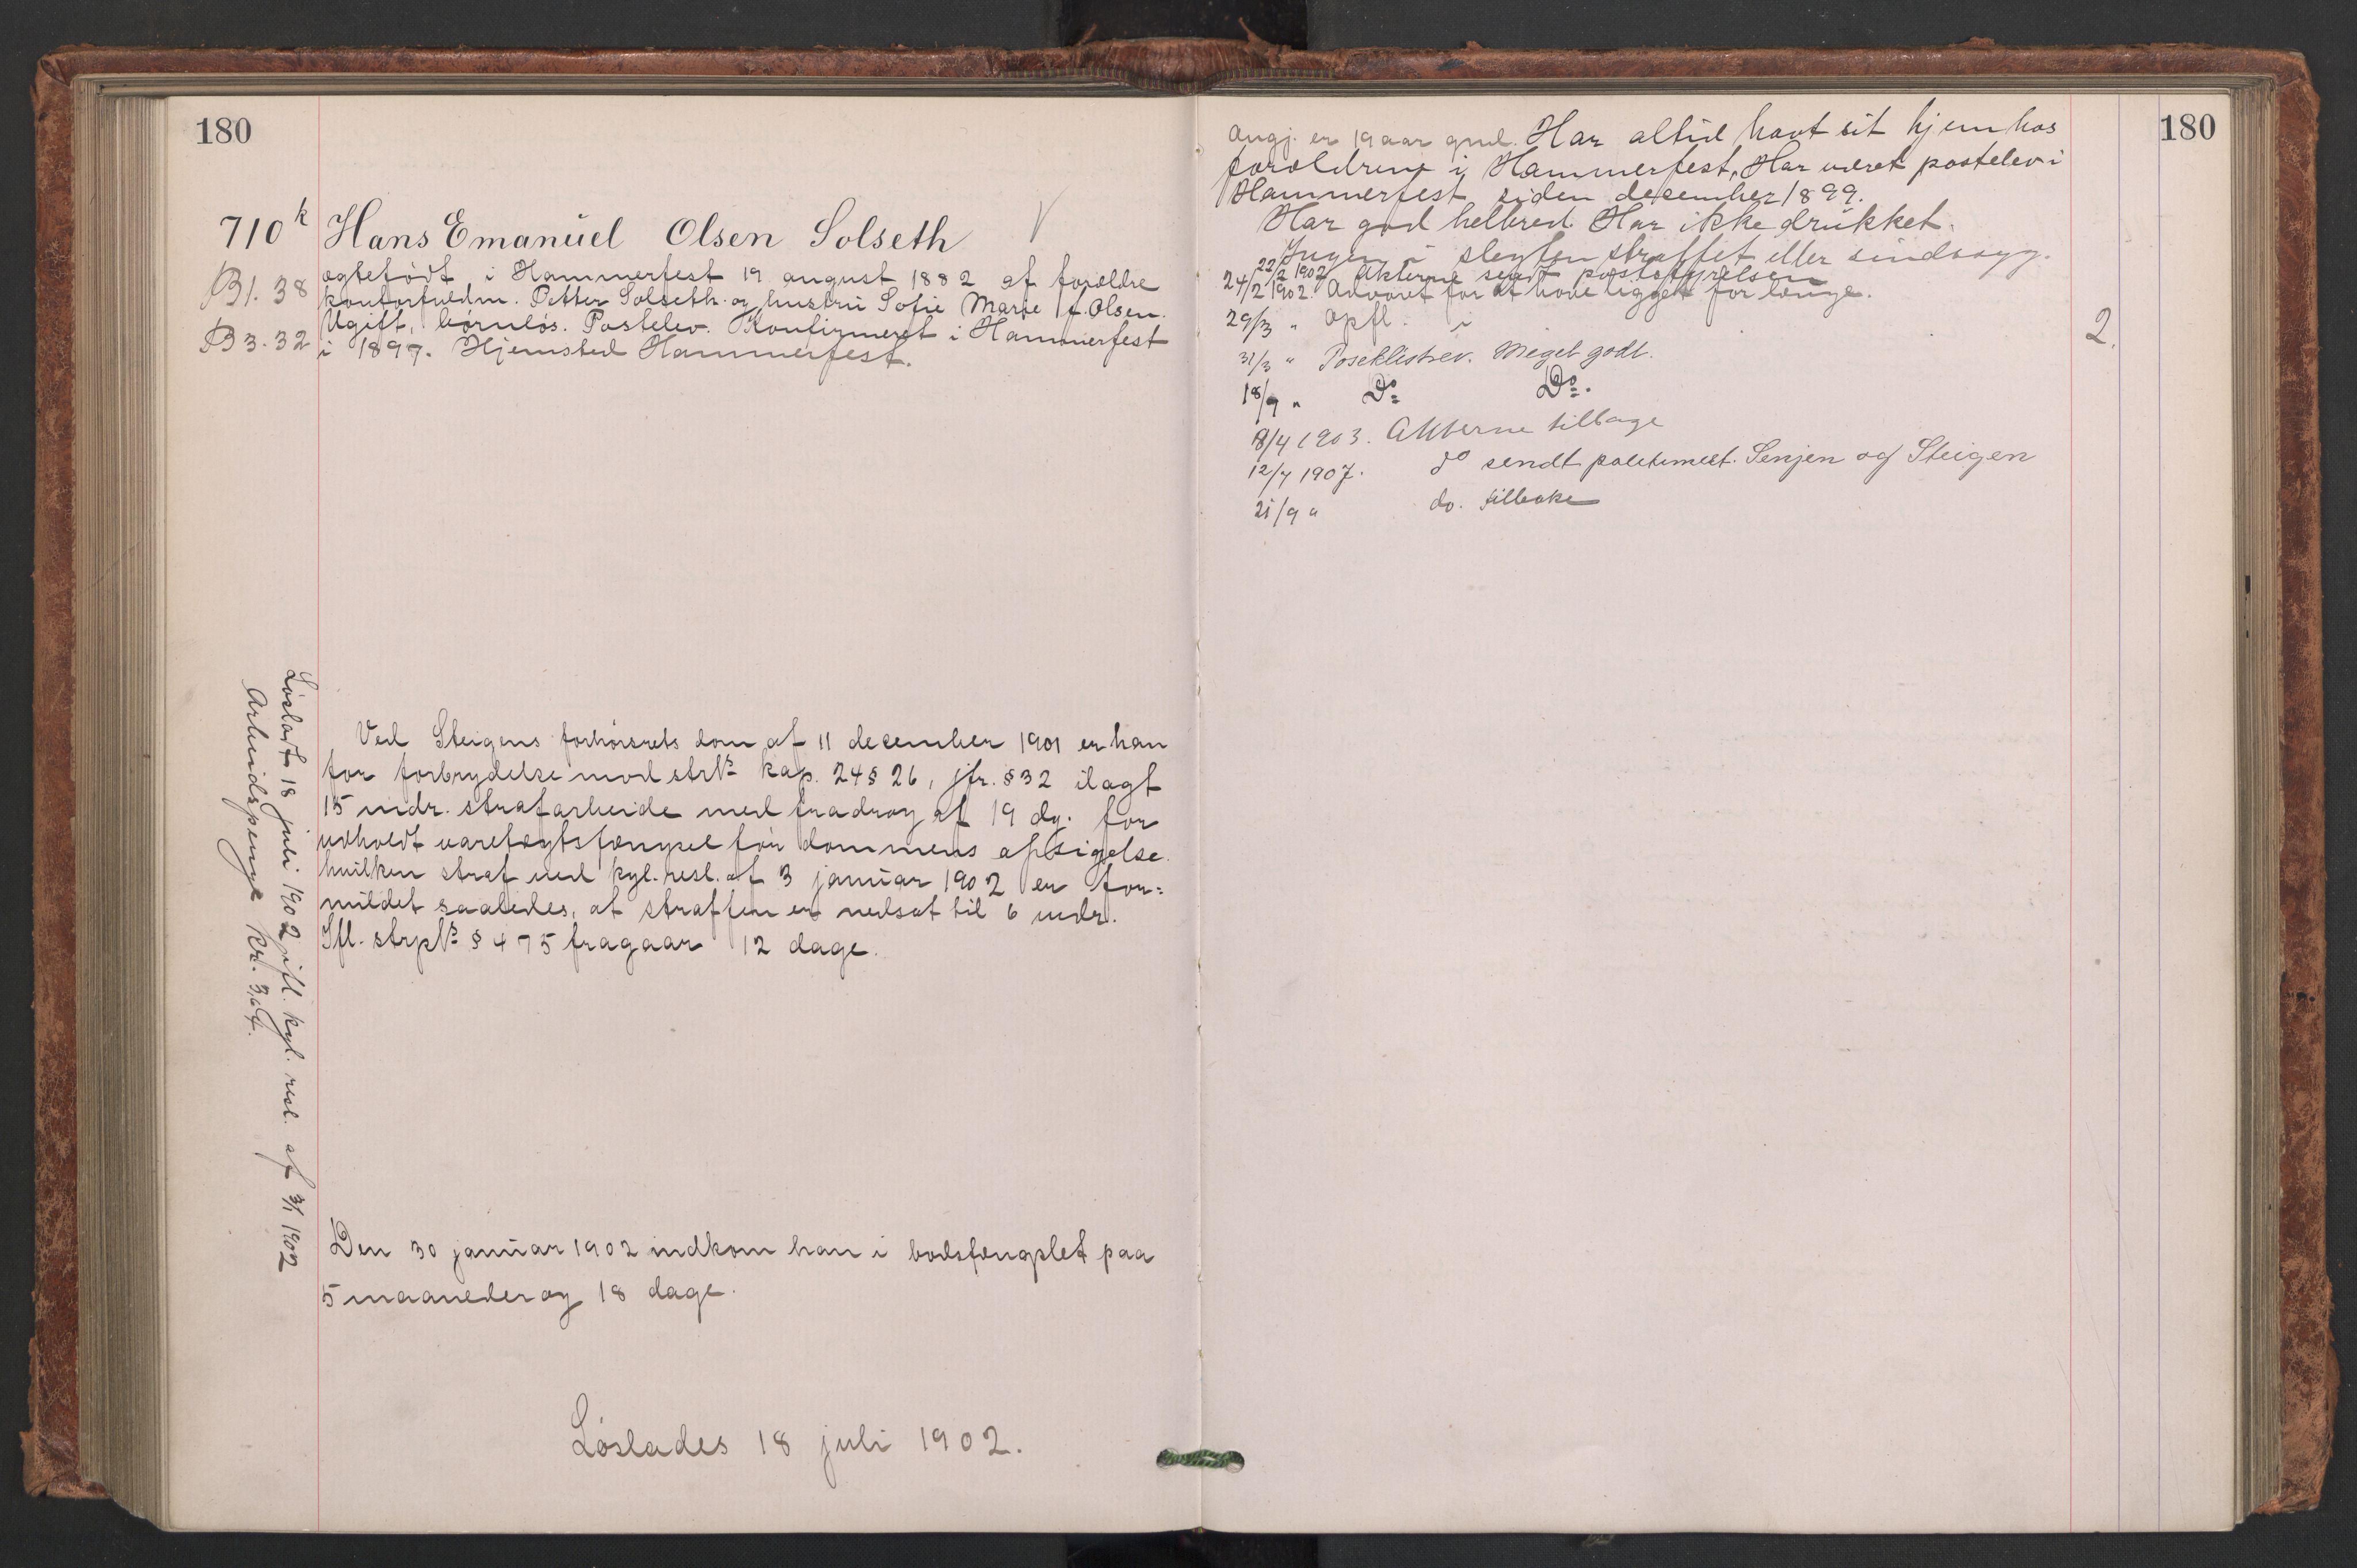 180
710 k Hans Emanuel Olsen Solseth V
B1. 38
B3. 32
ægtefødt i Hammerfest 19 august 1882 af forældre
kontorfuldm. Petter Solseth og hustru Sofie Marie f. Olsen.
Ugift, børnløs. Postelev. Konfirmeret i Hammerfest
i 1897. Hjemsted Hammerfest.
Ved Steigens forhørsrets dom af 11 december 1901 er han
for forbrydelse mod strl. kap. 24 § 26, jfr. § 32 ilagt
15 mdr. strafarbeide med fradrag af 19 dg. for
udholdt varetægtsfængsel før dommens afsigelse
hvilken straf ved kgl. resl. af 3 januar 1902 er for=
mildet saaledes, at straffen er nedsat til 6 mdr.
Ifl. strpl. § 475 fragaar 12 dage.
Løsladt 18 juli 1902 ifl. kgl. resl. af 3/1 1902
Arbeidspenge kr. 3,64.
Den 30 januar 1902 indkom han i bodsfængslet paa
5 maaneder og 18 dage.
Løslades 18 juli 1902.
180
Angj. er 19 aar gml. Har altid havt sit hjem hos
forældrene i Hammerfest. Har været postelev i
Hammerfest siden desember 1899.
Har god helbred. Har ikke drukket.
Ingen i slegten straffet eller sindssyg.
22/2 1902 Akterne sendt poststyrelsen
24/2 1902. Advaret for at have ligget for længe.
29/3 " Opfl. i
2.
31/3 " Poseklistrer. Meget godt.
18/7 " Do Do.
18/4 1903. Akterne tilbage
12/7 1907. do sendt politimest. Senjen og Steigen
21/9 " do. tilbake